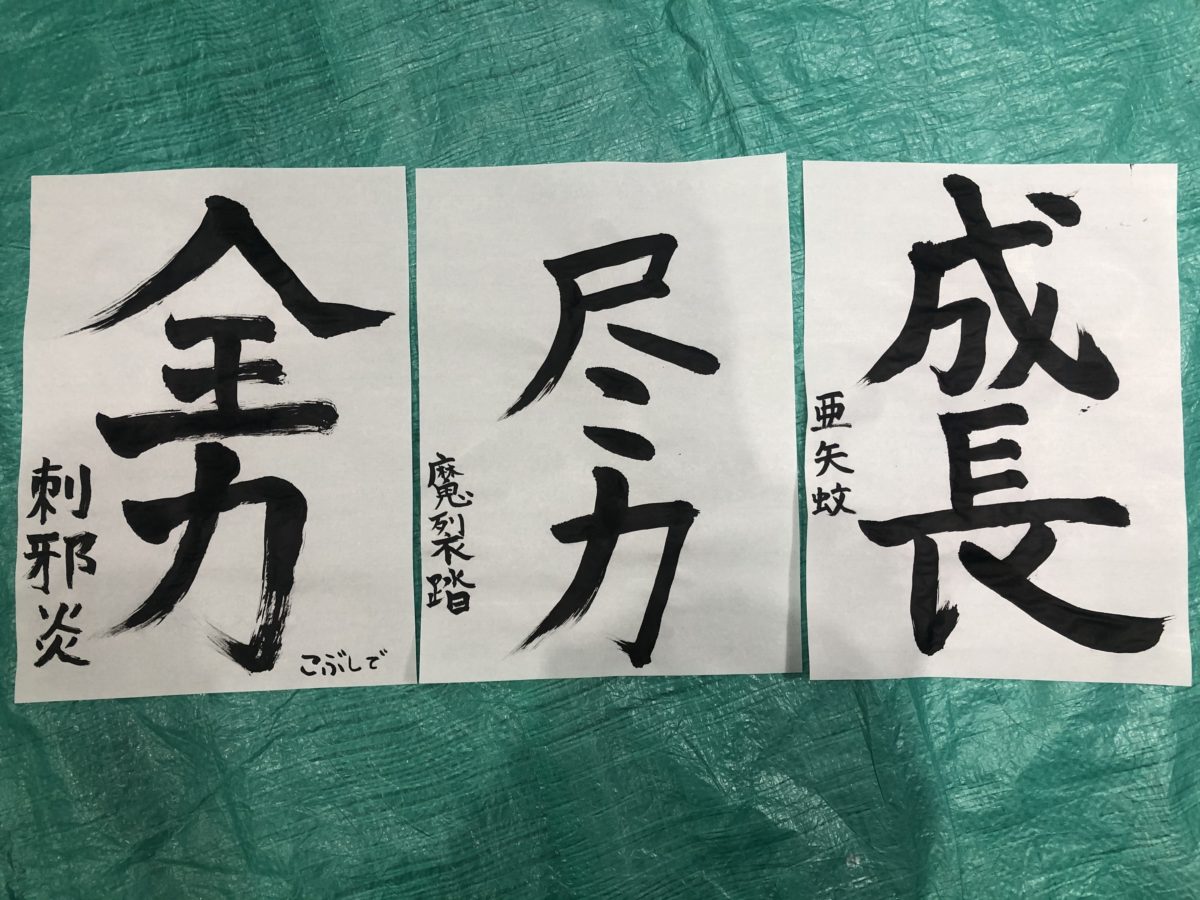 成長
亜矢蚊
尽力
魔裂踏
全力
刺邪炎
こぶしで